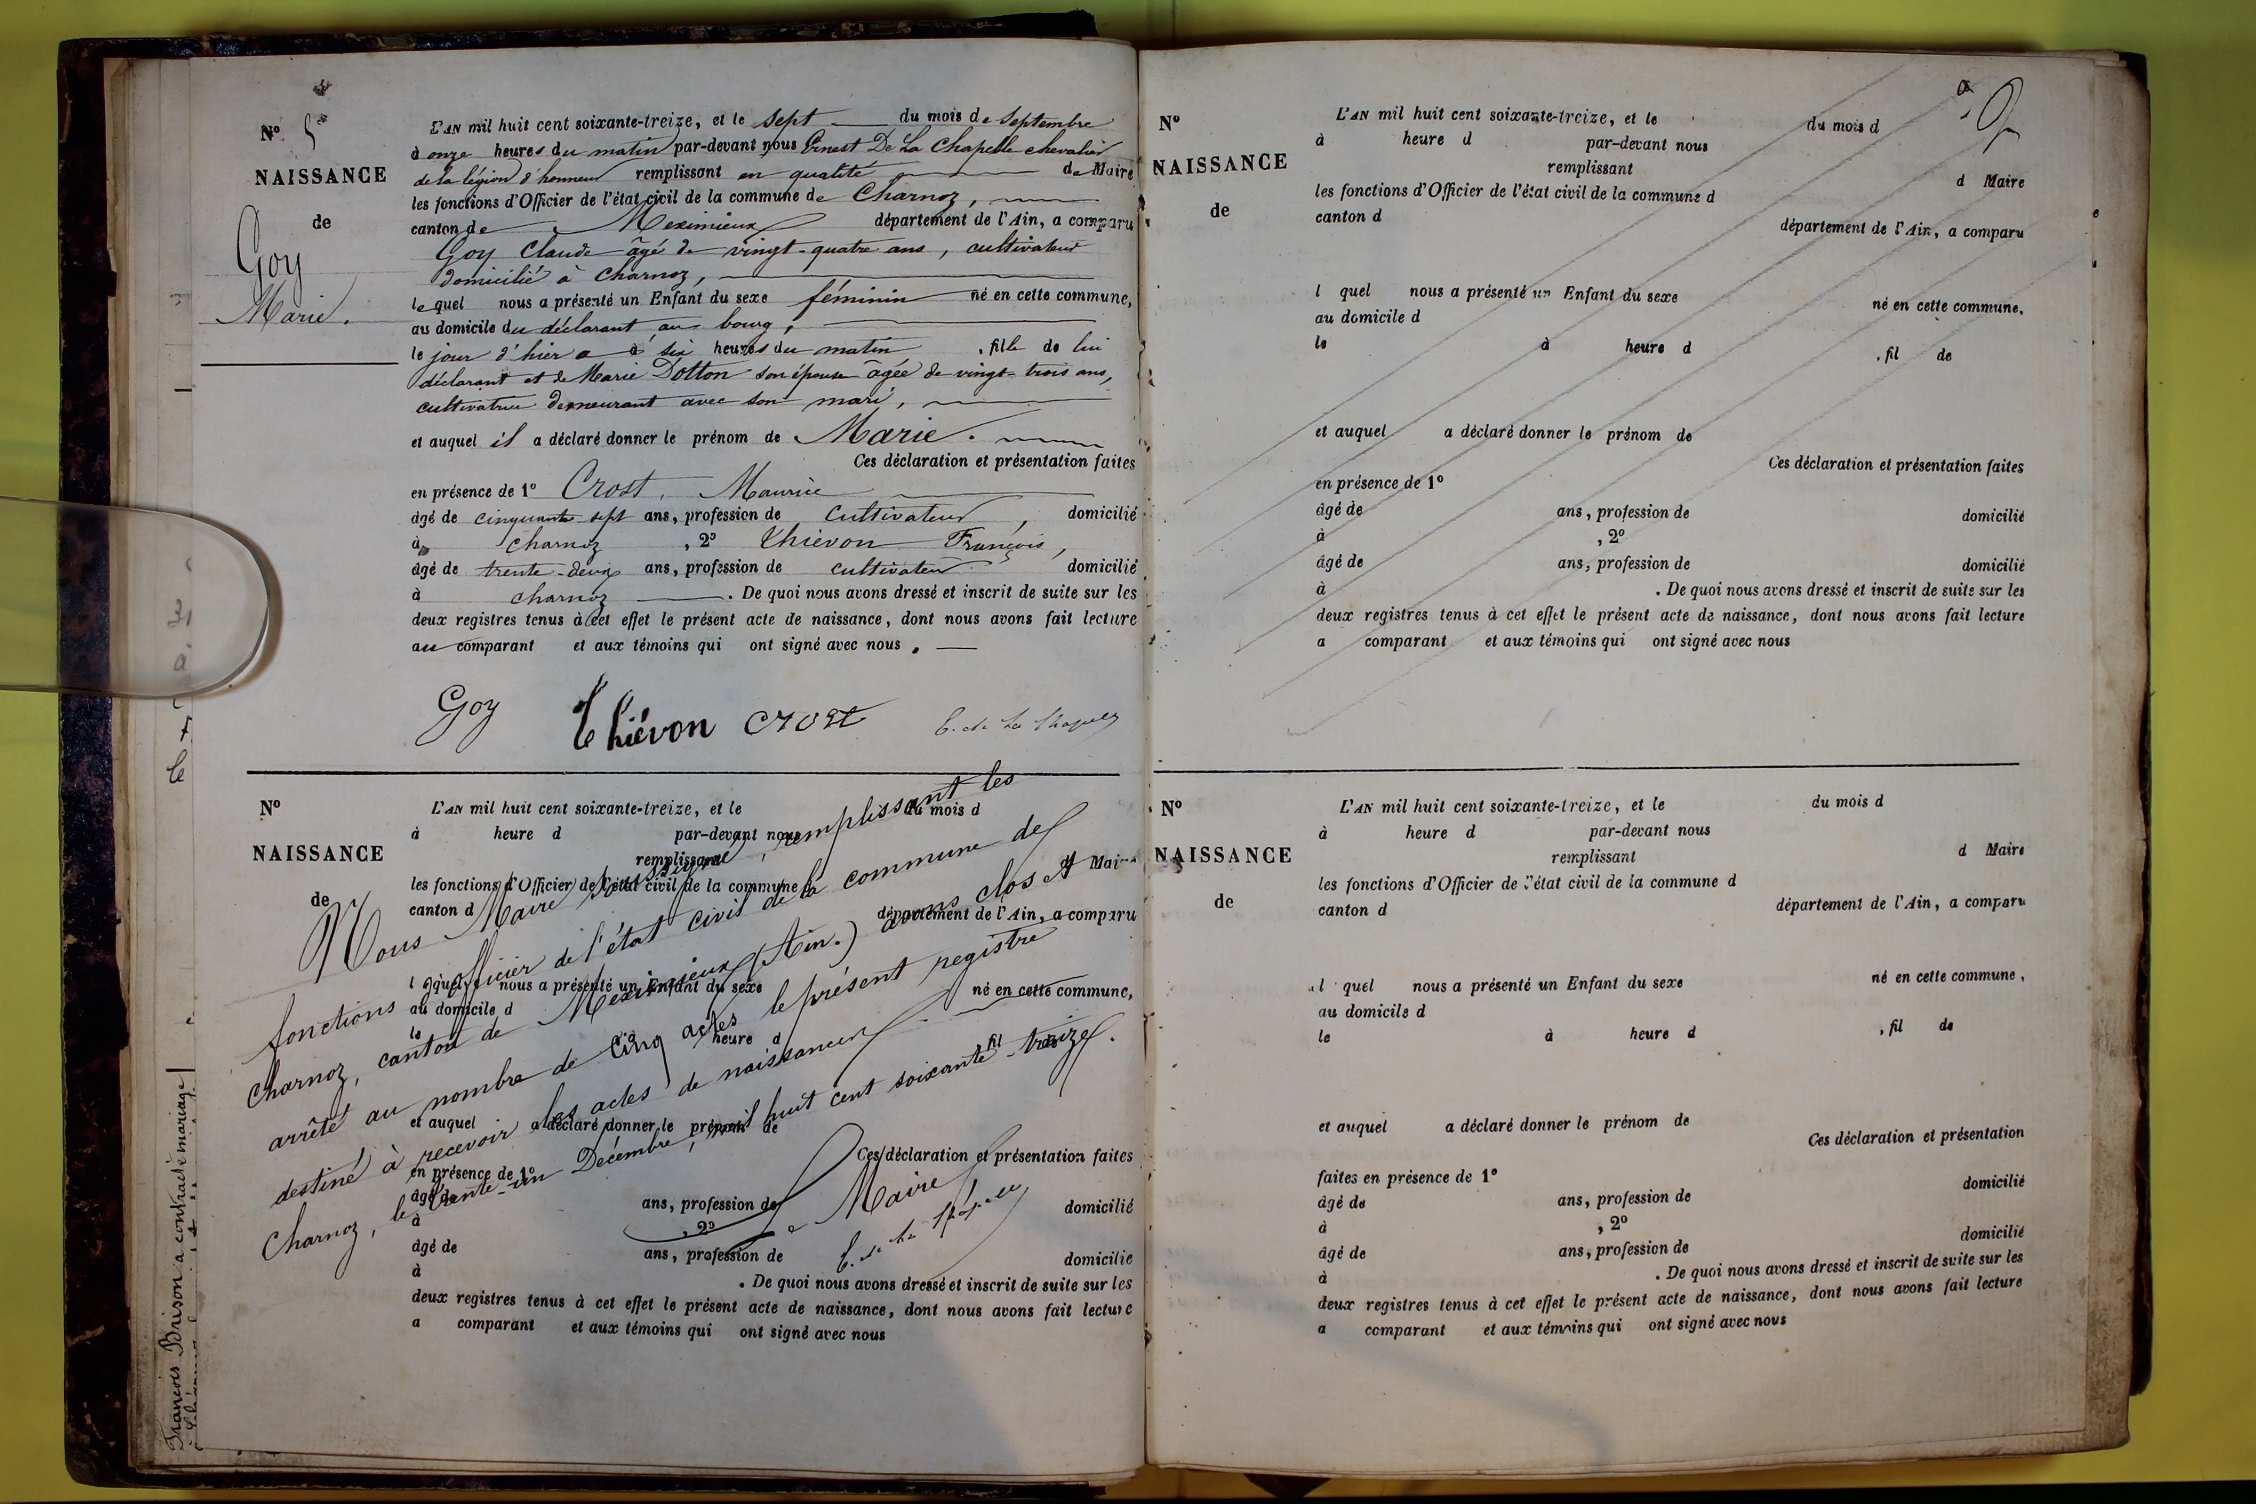 Nº 5
NAISSANCE
de
Goy
Marie.
L'AN mil huit cent soixante-treize, et le sept du mois de septembre
à onze heures du matin par-devant nous Ernest De La Chapelle chevalier
de la légion d'honneur remplissant en qualité de Maire
les fonctions d'Officier de l'état civil de la commune de Charnoz,
canton de Meximieux département de l'Ain, a comparu
Goy Claude âgé de vingt-quatre ans, cultivateur
domicilié à Charnoz,
lequel nous a présenté un Enfant du sexe féminin né en cette commune,
au domicile du déclarant au bourg,
le jour d'hier à six heures du matin, fille de lui
déclarant et de Marie Dotton son épouse âgée de vingt-trois ans,
cultivatrice demeurant avec son mari,
et auquel il a déclaré donner le prénom de Marie.
Ces déclaration et présentation faites
en présence de 1º Crost, Maurice
âgé de cinquante sept ans, profession de cultivateur, domicilié
à Charnoz, 2º Thiévon François,
âgé de trente-deux ans, profession de cultivateur domicilié
à charnoz. De quoi nous avons dressé et inscrit de suite sur les
deux registres tenus à cet effet le présent acte de naissance, dont nous avons fait lecture
au comparant et aux témoins qui ont signé avec nous.
Goy Thiévon crost E. de La Chapelle
Nº
NAISSANCE
de
L'AN mil huit cent soixante-treize, et le du mois d
à heure d par-devant nous
remplissant d Maire
les fonctions d'Officier de l'état civil de la commune d
canton d département de l'Ain, a comparu
l quel nous a présenté un Enfant du sexe né en cette commune,
au domicile d
le heure d fil
et auquel a déclaré donner le prénom de
Ces déclaration et présentation faites
en présence de 1º
âgé de ans, profession de domicilié
à , 2º
âgé de ans, profession de domicilié
à . De quoi nous avons dressé et inscrit de suite sur les
deux registres tenus à cet effet le présent acte de naissance, dont nous avons fait lecture
a comparant et aux témoins qui ont signé avec nous
Nous Maire soussigné, remplissant les
fonctions d'officier de l'état civil de la commune de
Charnoz, canton de Meximieux (Ain.) avons clos et
arrêté au nombre de cinq actes le présent registre
destiné à recevoir les actes de naissance.
Charnoz, le trente-un Décembre, mil huit cent soixante-treize.
Le Maire
E. de La Chapelle
François Brison a contracté mariage
Nº
NAISSANCE
de
L'AN mil huit cent soixante-treize, et le du mois d
à heure d par-devant nous
remplissant d Maire
les fonctions d'Officier de l'état civil de la commune d
canton d département de l'Ain, a comparu
l quel nous a présenté un Enfant du sexe né en cette commune,
au domicile d
le à heure d , fil de
et auquel a déclaré donner le prénom de
Ces déclaration et présentation faites
en présence de 1º
âgé de ans, profession de domicilié
à , 2º
âgé de ans, profession de domicilié
à . De quoi nous avons dressé et inscrit de suite sur les
deux registres tenus à cet effet le présent acte de naissance, dont nous avons fait lecture
a comparant et aux témoins qui ont signé avec nous
Nº
NAISSANCE
de
L'AN mil huit cent soixante-treize, et le du mois d
à heure d par-devant nous
remplissant d Maire
les fonctions d'Officier de l'état civil de la commune d
canton d département de l'Ain, a comparu
l quel nous a présenté un Enfant du sexe né en cette commune,
au domicile d
le à heure d , fil de
et auquel a déclaré donner le prénom de
Ces déclaration et présentation
faites en présence de 1º domicilié
âgé de ans, profession de
à , 2º domicilié
âgé de ans, profession de
à . De quoi nous avons dressé et inscrit de suite sur les
deux registres tenus à cet effet le présent acte de naissance, dont nous avons fait lecture
a comparant et aux témoins qui ont signé avec nous